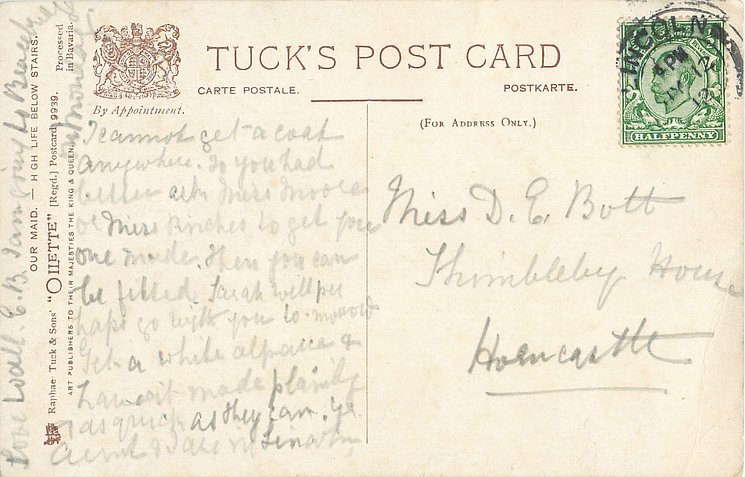 TUCK'S POST CARD
CARTE POSTALE.
POSTKARTE.
By Appointment.
(FOR ADDRESS ONLY.)
LINCOLN
4 PM
12
HALFPENNY
I cannot get a coat
anywhere. So you had
better ask Miss Moore
or Miss Kinches to get you
one made. Then you can
be fitted. Sarah will per
haps go with you to-morrow
Get a white alpaca &
have it made plainly
& as quick as they can.
Love to all. E.B. I am going to
Miss D. E. Bott
Thimbleby House
Horncastle
OUR MAID. — HIGH LIFE BELOW STAIRS.
Raphael Tuck & Sons' "OILETTE" [Regd.] Postcard 9939.
ART PUBLISHERS TO THEIR MAJESTIES THE KING & QUEEN.
Processed
in Bavaria.